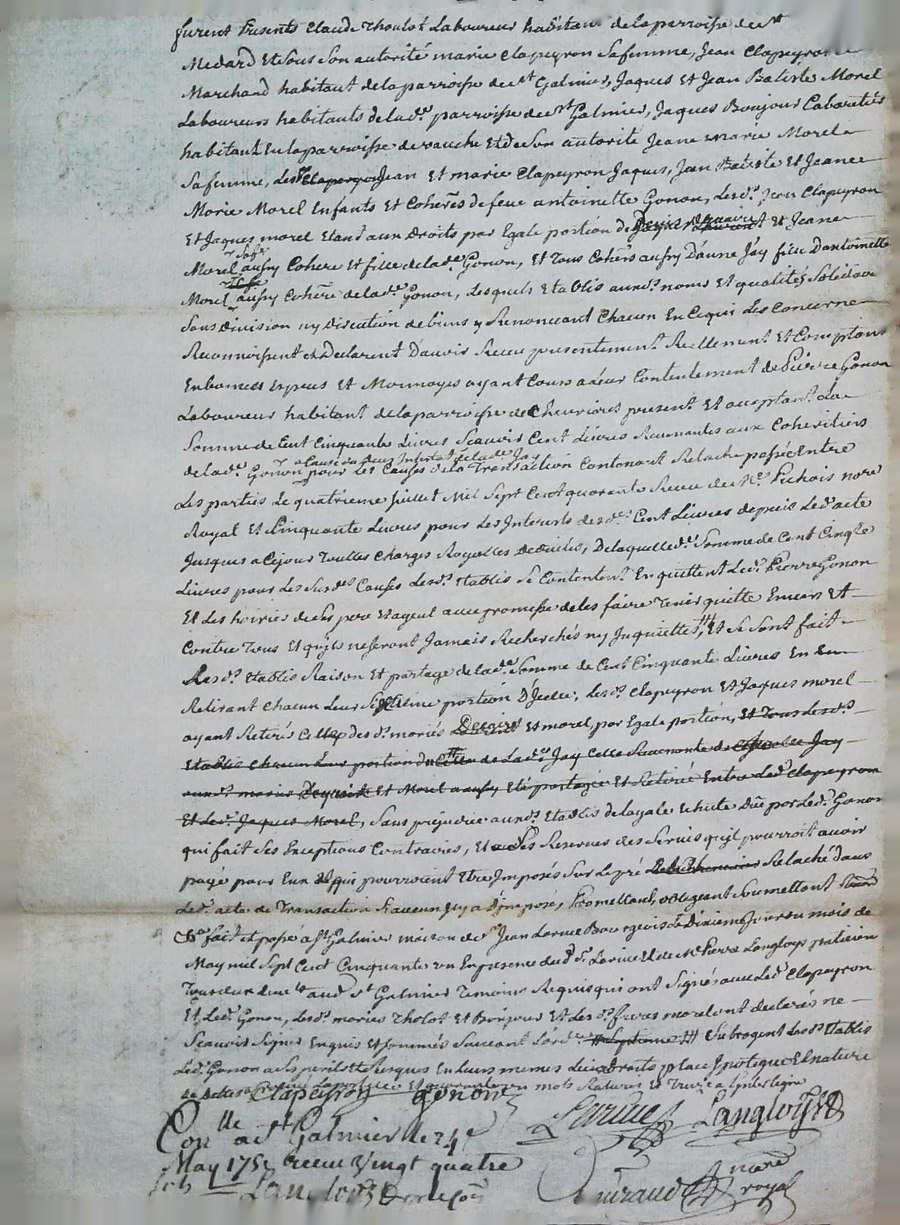 furent Presents Claude Tholot Laboureur habitant de la parroisse de st
Medard Et Sous Son autorité marie Clapeyron Sa femme, Jean Clapeyron
Marchand habitant de la parroisse de st Galmier, Jaques Et Jean Batiste Morel
Laboureurs habitants de lad.e parroisse de st Galmier, Jaques Bonjour Cabaretier
habitant En la parroisse de vauche Et de Son autorité Jeane marie Morel
Sa femme, Lesd. Clapeyron Jean Et marie Clapeyron Jaques, Jean Batiste Et Jeane
Marie Morel Enfants Et Coherès de feue antoinette Gonon, Lesd.s Jean Clapeyron
Et Jaques morel Etant aux Droits par Egale portion de Et Jeane
Morel aussy Cohere Et fille de lad.e Gonon, Et Tous Cohers aussy D'anne Jay fille D'antoinette
Morel aussy Cohère de lad.e Gonon, Lesquels Etablis auxd.s noms Et qualités Solidaire
Sans Division ny Discution de biens y Renonceant Chacun En Ce qui Les Concerne
Reconnoissent Et Declarent D'avoir Receu presentement Reellement Et Comptant
En bonnes Especes Et Monnoyes ayant Cours a Leur Contentement de Pierre Gonon
Laboureur habitant de la parroisse de Chevrieres present Et acceptant La
Somme de Cent Cinquante Livres Scavoir Cent Livres Revenantes aux Coheritiers
de lad.e Gonon pour Les Causes de la Transaction Contenant Relache passée Entre
Les parties Le quatrieme Juillet Mil Sept Cent quarante Receu de M.e Pichois nore
Royal Et Cinquante Livres pour Les Interests desd.s Cent Livres depuis Led. acte
Jusques a Ce jour Toutes Charges Royalles Deduites, De laquelle d.e Somme de Cent Cinqte
Livres pour Les Susd.es Causes Lesd.s Etablis Se Contentent En quittent Led. Pierre Gonon
Et Les hoiries de Ses pere Et ayeul avec promesse de les faire Tenir quitte Envers Et
Contre Tous Et qu'ils ne Seront Jamais Recherchés ny Inquiettés, Et Se Sont fait
Lesd.s Etablis Raison Et partage de lad.e Somme de Cent Cinquante Livres En En
Retirant Chacun Leur portion D'Icelle, Lesd.s Clapeyron Et Jaques morel
ayant Retirés Celle desd.s mariés Et morel, par Egale portion, Et Tous Lesd.s
Etablis Chacun Leur portion de lad.e Jay Celle Revenante
Et Morel aussy Eté partagée Et Retirée Entre Led. Clapeyron
Et Led. Jaques Morel, Sans prejudice auxd.s Etablis De la Due par Led. Gonon
qui fait Ses Exceptions Contraires, Et Ses Reserves des Servis qu'il pourroit avoir
payé pour Eux Et qui pourroient Etre Imposés Sur Le pré Relaché dans
Led. acte de Transaction Si aucun y a D'imposé, Promettant, obligeant Soumettant
fait Et passé a st Galmier maison de Sr Jean Larue Bourgeois Le Dixieme Jour du mois de
May mil Sept Cent Cinquante un En presence dud. Sr Larue Et de Mr Pierre Langloys praticien
aud. st Galmier Temoins Requis qui ont Signés avec Led. Clapeyron
Et Led. Gonon, Lesd.s mariés Tholot Et Bonjour Et Lesd.s freres morel ont declarés ne
Scavoir Signer Enquis Et Sommés Suivant L'ord.ce Subrogent Lesd.s Etablis
Led. Gonon a Ses perils Et Risques En Leurs memes Lieu Droits place Ipoteque Et nature
Clapeyron gonon
Larue Langloys
Conlle a st Galmier le 24e
May 1751 receu vingt quatre
sols Langloys
Guiraud nore royal